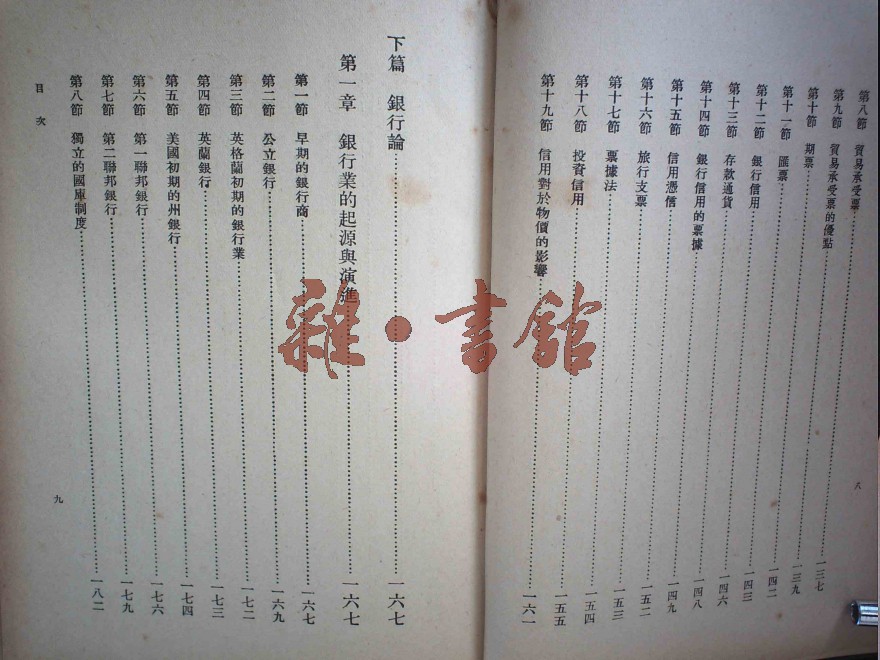 第八節 貿易承受票……一三七
第九節 貿易承受票的優點……一三九
第十節 期票……一四二
第十一節 匯票……一四三
第十二節 銀行信用……一四六
第十三節 存款通貨……一四八
第十四節 銀行信用的票據……一四九
第十五節 信用憑信……一五二
第十六節 旅行支票……一五三
第十七節 票據法……一五四
第十八節 投資信用……一五五
第十九節 信用對於物價的影響……一六一
八
下篇 銀行論……一六七
第一章 銀行業的起源與演進……一六七
第一節 早期的銀行商……一六七
第二節 公立銀行……一六九
第三節 英格蘭初期的銀行業……一七二
第四節 英蘭銀行……一七三
第五節 美國初期的州銀行……一七四
第六節 第一聯邦銀行……一七六
第七節 第二聯邦銀行……一七九
第八節 獨立的國庫制度……一八二
目次
九
雜·書館